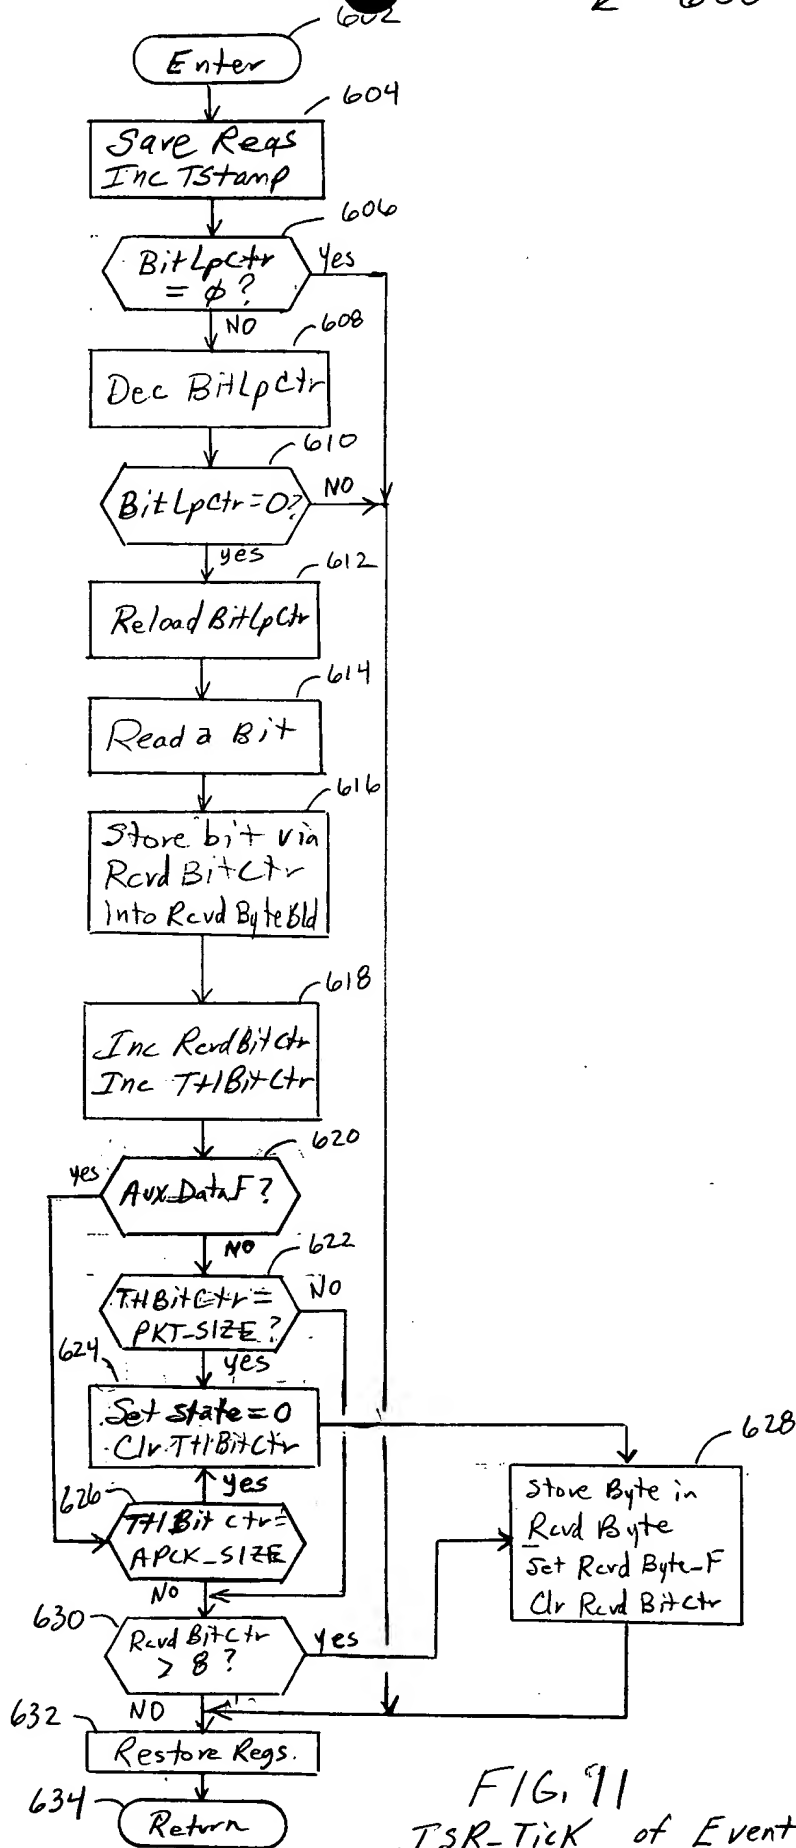 602
Enter
604
Save Regs
Inc TStamp
606
BitLpCtr
= ϕ?
Yes
NO
608
Dec BitLpCtr
610
BitLpCtr=0?
NO
yes
612
Reload BitLpCtr
614
Read a Bit
616
Store bit via
Rcvd BitCtr
Into Rcvd ByteBld
618
Inc RcvdBitCtr
Inc TtlBitCtr
620
yes
Aux_DataF?
NO
622
TtlBitCtr=
PKT_SIZE?
NO
624
yes
Set state=0
Clr TtlBitCtr
628
626
yes
TtlBitCtr=
APCK_SIZE
NO
Store Byte in
Rcvd Byte
Set Rcvd Byte_F
Clr Rcvd BitCtr
630
Rcvd BitCtr
> 8?
yes
NO
632
Restore Regs.
634
Return
FIG. 11
TSR_Tick of Event